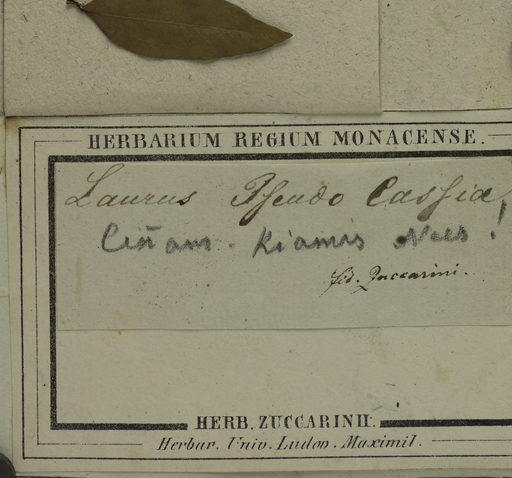 HERBARIUM REGIUM MONACENSE.
Laurus Pseudo Cassiæ
Cin̄am. Kiamis Nees!
fid. Zuccarini.
HERB. ZUCCARINII.
Herbar. Univ. Ludov. Maximil.